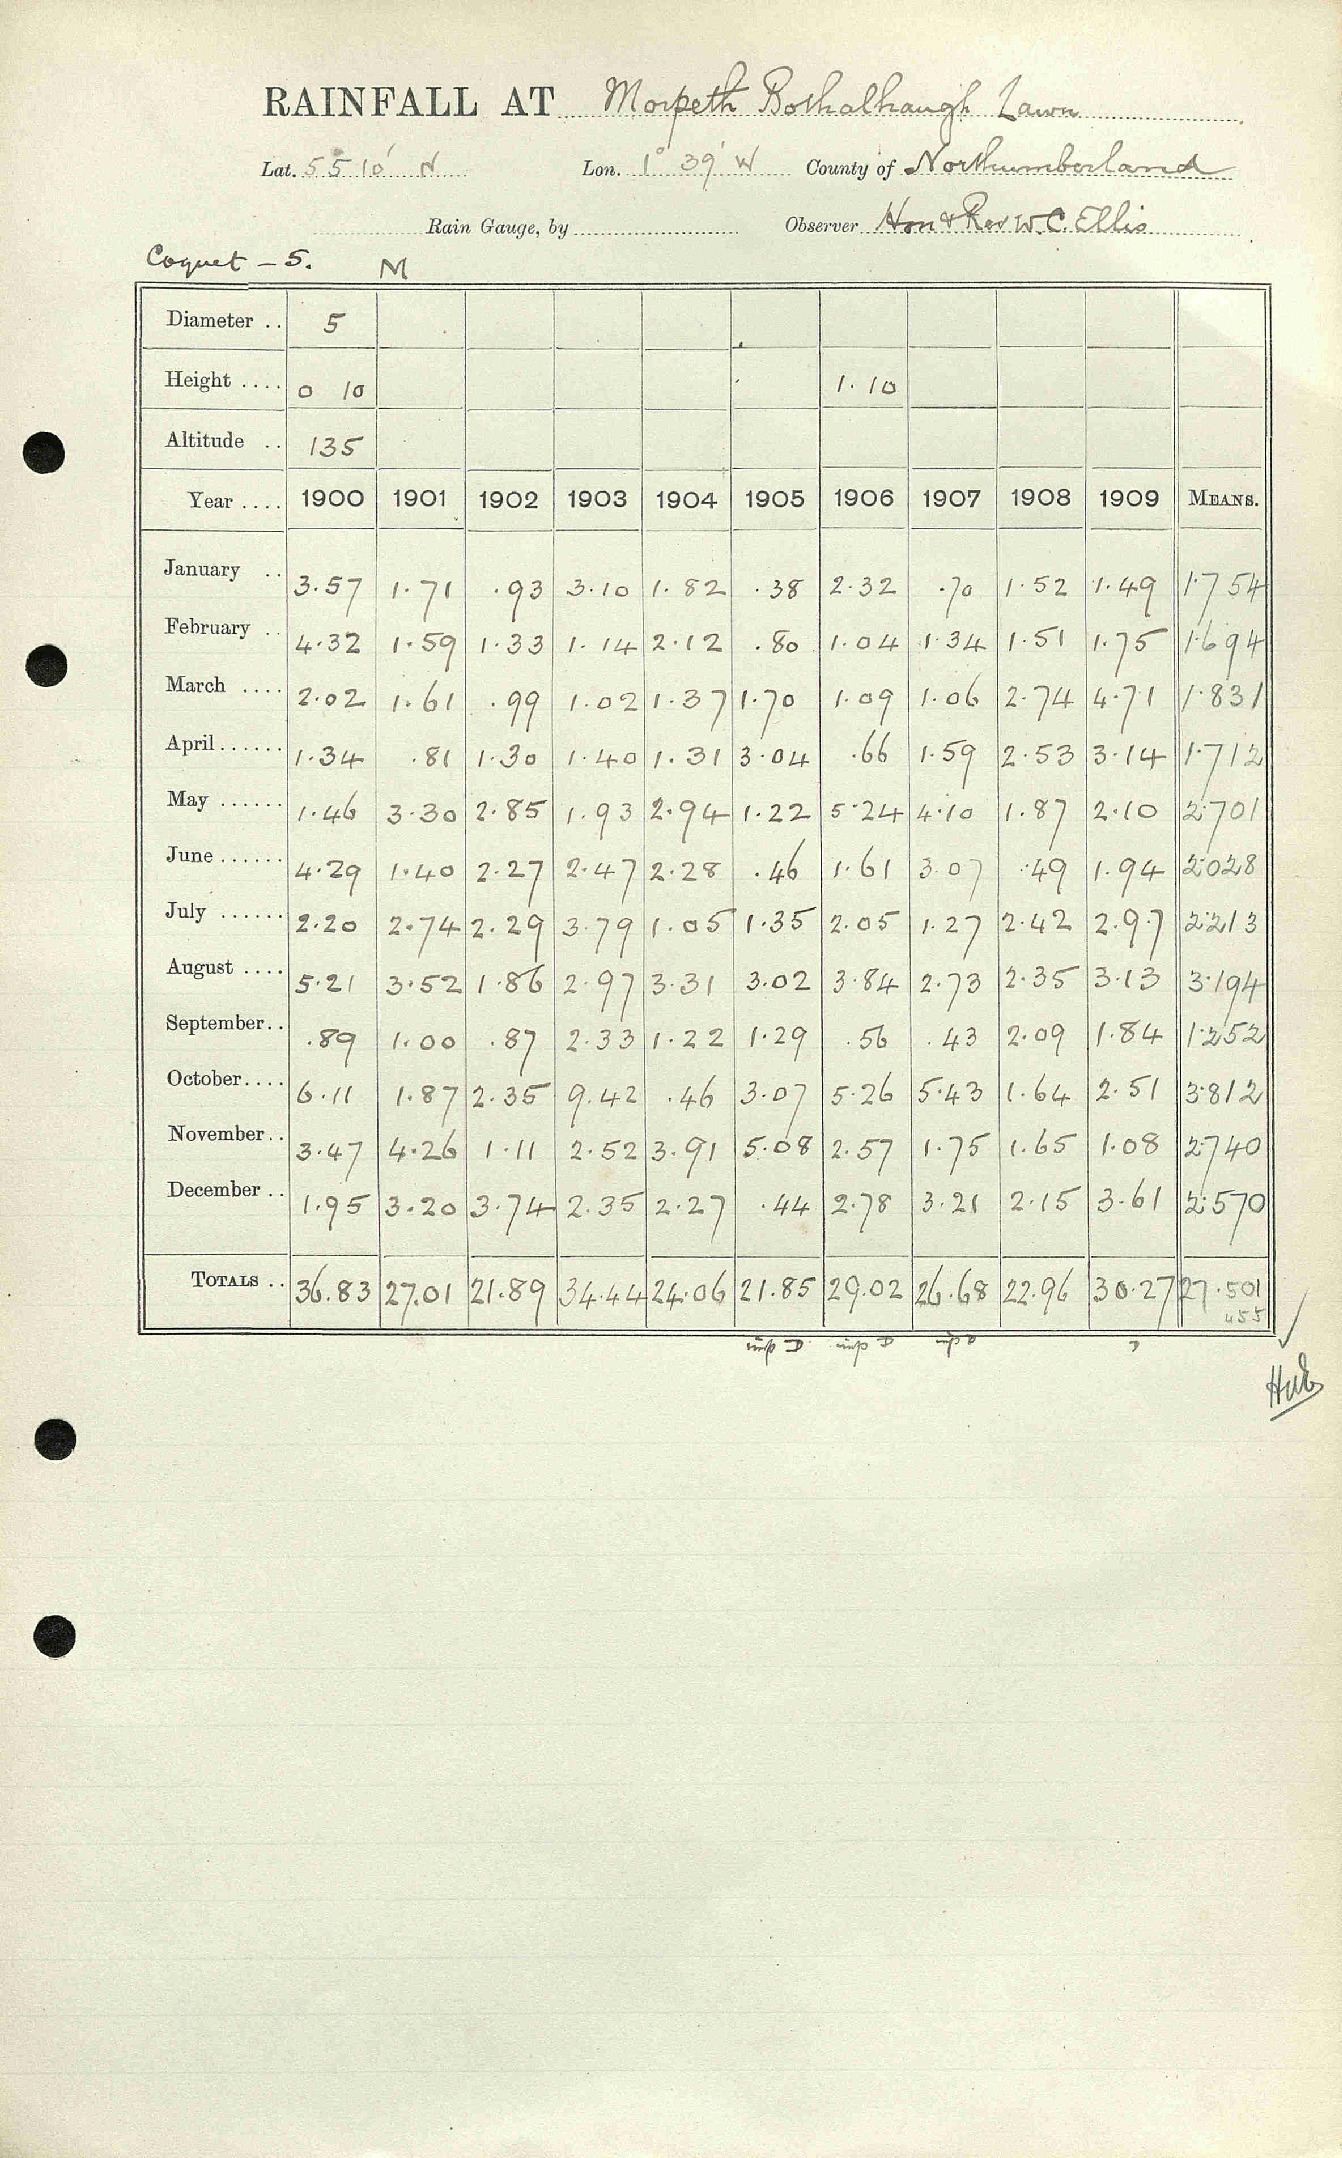 RAINFALL AT Morpeth Bothalhaugh Lawn
Lat. 55° 10' N Lon. 1° 39' W County of Northumberland
Rain Gauge, by Observer Hon & Rev W.C. Ellis
Coquet – 5. M
Diameter .. 5
Height .... 0 10 1.10
Altitude .. 135
Year .... 1900 1901 1902 1903 1904 1905 1906 1907 1908 1909 MEANS.
January .. 3.57 1.71 .93 3.10 1.82 .38 2.32 .70 1.52 1.49 1.754
February .. 4.32 1.59 1.33 1.14 2.12 .80 1.04 1.34 1.51 1.75 1.694
March .... 2.02 1.61 .99 1.02 1.37 1.70 1.09 1.06 2.74 4.71 1.831
April ...... 1.34 .81 1.30 1.40 1.31 3.04 .66 1.59 2.53 3.14 1.712
May ...... 1.46 3.30 2.85 1.93 2.94 1.22 5.24 4.10 1.87 2.10 2.701
June ...... 4.29 1.40 2.27 2.47 2.28 .46 1.61 3.07 .49 1.94 2.028
July ...... 2.20 2.74 2.29 3.79 1.05 1.35 2.05 1.27 2.42 2.97 2.213
August .... 5.21 3.52 1.86 2.97 3.31 3.02 3.84 2.73 2.35 3.13 3.194
September .. .89 1.00 .87 2.33 1.22 1.29 .56 .43 2.09 1.84 1.252
October .... 6.11 1.87 2.35 9.42 .46 3.07 5.26 5.43 1.64 2.51 3.812
November .. 3.47 4.26 1.11 2.52 3.91 5.08 2.57 1.75 1.65 1.08 2.740
December .. 1.95 3.20 3.74 2.35 2.27 .44 2.78 3.21 2.15 3.61 2.570
TOTALS .. 36.83 27.01 21.89 34.44 24.06 21.85 29.02 26.68 22.96 30.27 27.501
455
imp D imp D imp D D